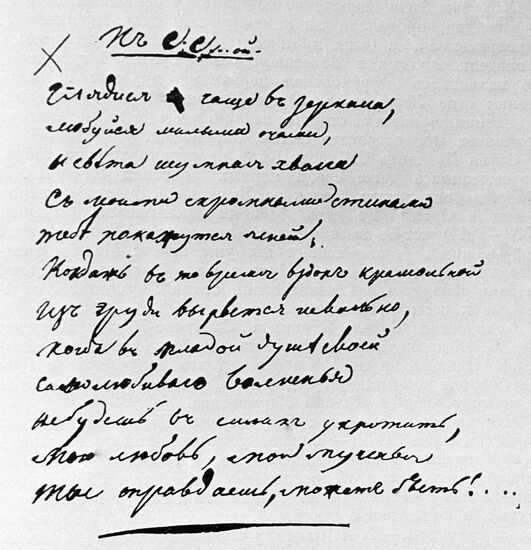 Къ С.С....ой.
Глядися чаще въ зеркала,
любуйся милыми очами,
и свѣта шумная хвала
Съ моими скромными стихами
тебѣ покажутся ясней;
Когдажъ въ то время вздохъ крамольной
изъ груди вырвется невольно,
когда въ младой душѣ своей
самолюбиваго волненья
небудешь въ силахъ укротить,
мою любовь, мои мученья
ты оправдаешь, можетъ быть!....